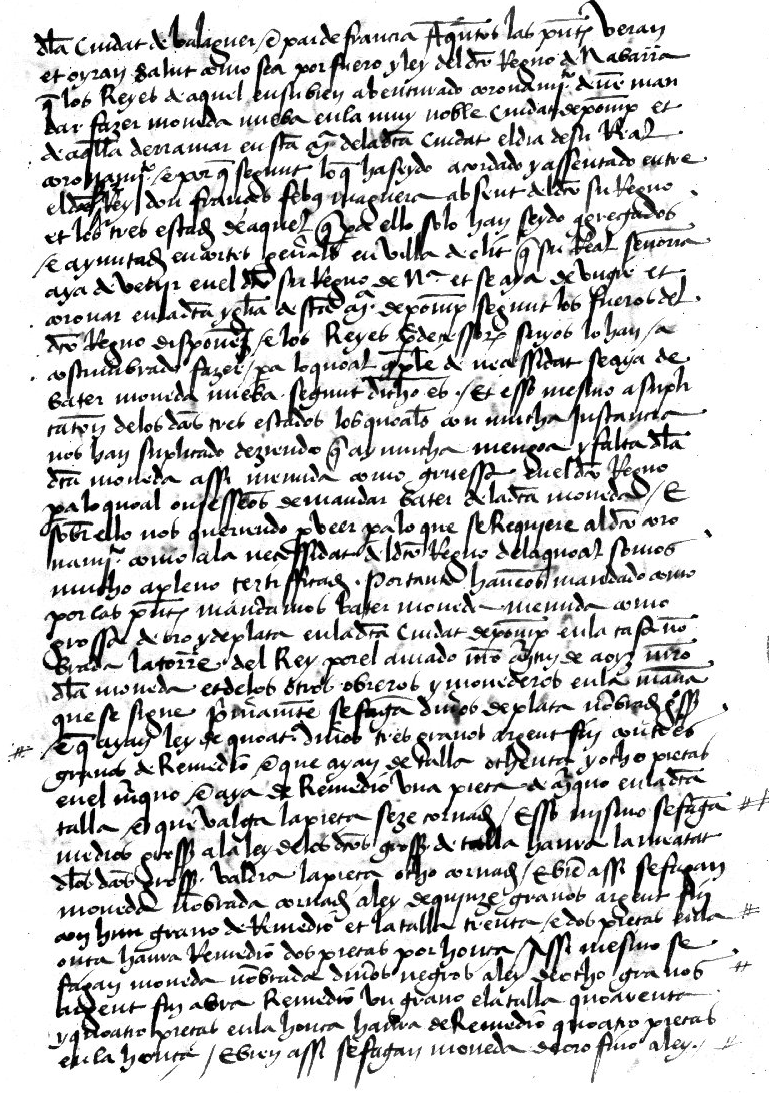 dla Ciudat de balaguer / e par de francia A quantos las pntes veran
et oyran salut como sea por fuero y ley del dcho Regno de Nabarra
q los Reyes de aquel en su bien abenturado coronamj.o deue man
dar fazer moneda nueba en la muy noble Ciudat de pomp et
de aqlla derramar en sta mª de la dcha Ciudat el dia de su Real
coronamj.o / e por q segunt lo q ha seydo acordado y assentado entre
el dcho Rey don frances febq maguera absent del dcho su Regno
et los tres estados de aquel q por ello solo han seydo agregados
/ e ayuntados en cortes generales en villa de olit q su Real señoria
aya de venir en el dcho su Regno de Nª et se aya de vngir et
coronar en la dcha yglia de sta mª de pomp segunt los fueros del
dcho Regno disponen / e los Reyes predecessores suyos lo han / a
costumbrado fazer / pa lo quoal qple de necessidat se aya de
bater moneda nueba segunt dicho es / Et esso mesmo a supli
cation de los dchos tres estados los quoales con mucha Instancia
nos han suplicado deziendo q ay mucha mengoa y falta dla
dcha moneda assi menuda como gruessa en el dcho Regno
pa lo quoal mandar bater de la dcha moneda / E
sobre ello nos queriendo pveer pa lo que se Requiere al dcho coro
namj.o como a la necessidat del dcho Regno de la quoal somos
mucho a pleno certifficados . Por tanto hauemos mandado como
por las pntes mandamos bater moneda menuda como
grossa de oro y de plata en la dcha Ciudat de pomp en la casa no
brada la torre del Rey por el amado nro mjn de aoyz mro
dla moneda et de los otros obreros y monederos en la mana
que se sigue primerament se fagan dineros de plata nobrados gross
/ e q ayan ley de quoatro dineros tres granos argent fin con tres
granos de Remedio / e que ayan de talla ochenta y ocho pieças
en el marquo / e aya de Remedio vna pieça de marquo en la dcha
talla / e que valga la pieça seze cornados / Esso mismo se fagan
medios gross a la ley de los dchos gross de talla haura la meatat
dlos dchos gross valdra la pieça ocho cornados / E bien assi se fagan
moneda nobrada cornados a ley de quinze granos argent fin
con hun grano de Remedio et la talla trenta / e dos pieças en la
onça haura Remedio dos pieças por honça / Assi mesmo se
fagan moneda nobrada dineros negros a ley de ocho granos
argent fin abra Remedio vn grano e la talla quoarenta
y quoatro pieças en la honça haura de Remedio quoatro pieças
en la honça / E bien assi se fagan moneda de oro fino a ley .